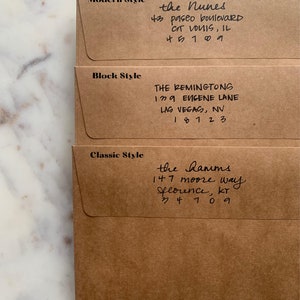 Modern Style
the Nunes
43 paseo boulevard
ST LOUIS, IL
4 5 7 8 9
Block Style
THE REMINGTONS
1739 EUGENE LANE
LAS VEGAS, NV
1 8 7 2 3
Classic Style
the Hamms
147 moore way
florence, KY
5 4 7 0 9